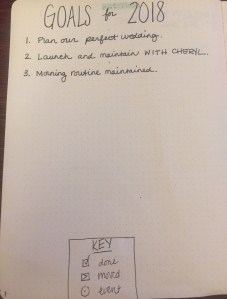 GOALS for 2018
1. Plan our perfect wedding.
2. Launch and maintain WITH CHERYL.
3. Morning routine maintained.
KEY
done
moved
event